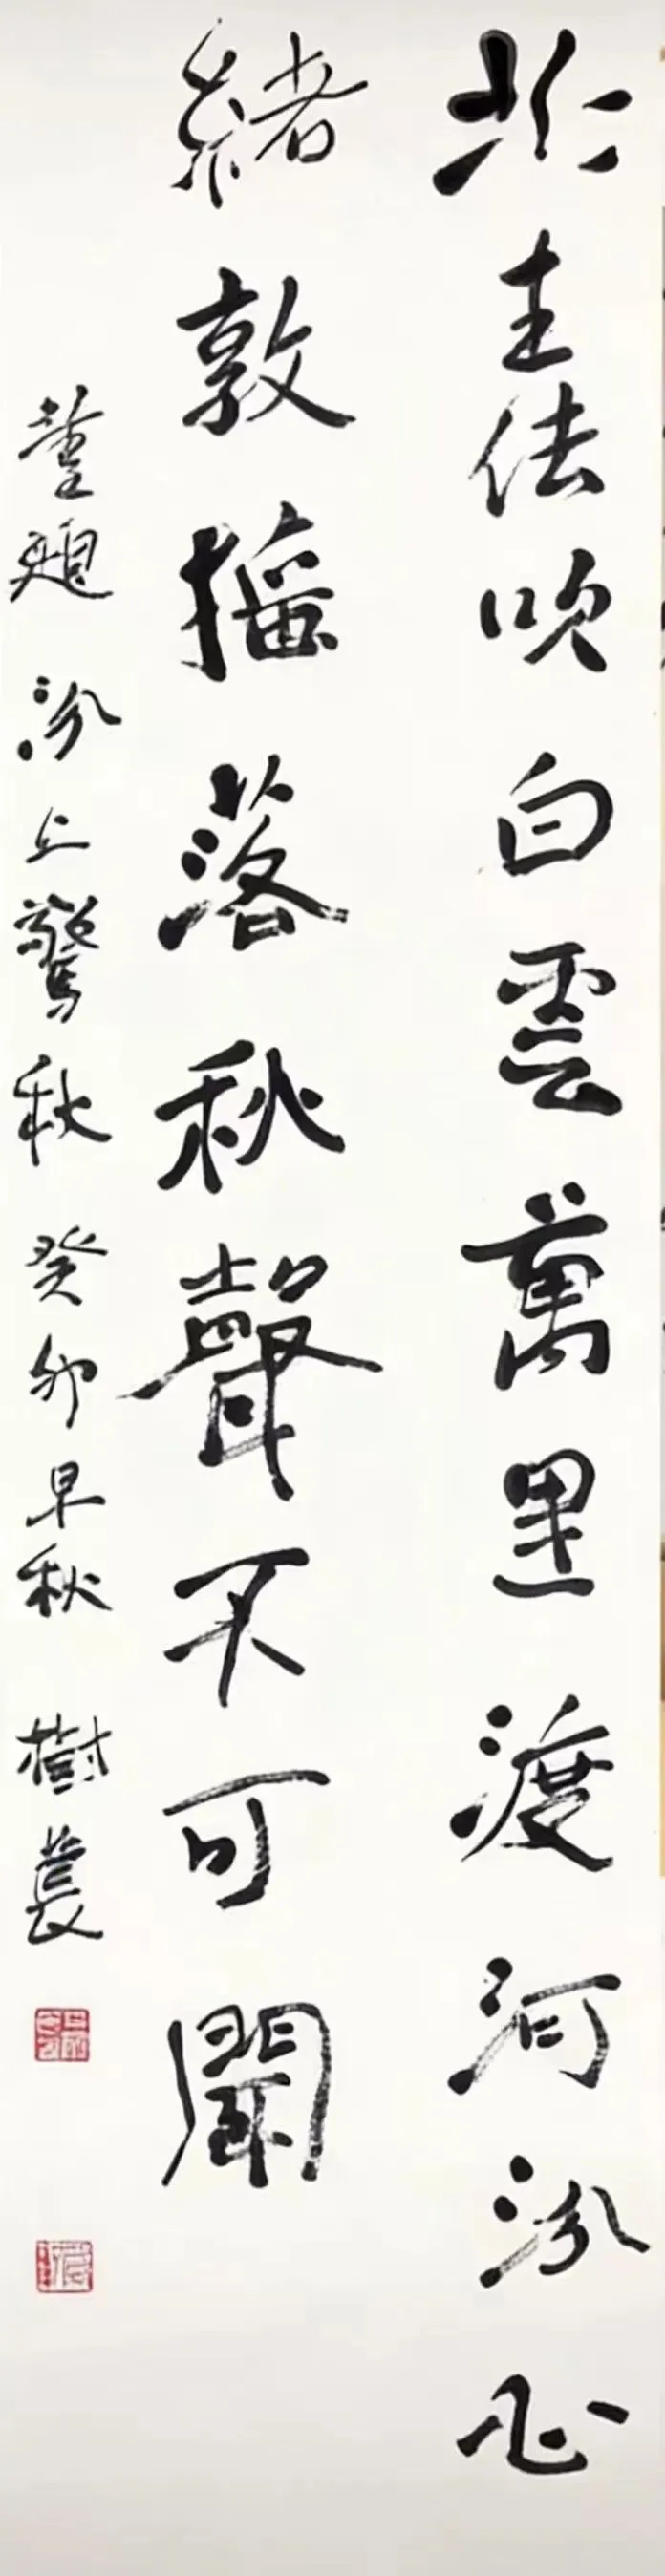 北主佉吹白雲萬里渡河汾心
緒敦猺落秋聲不可聞
汾上驚秋 癸卯早秋 樹